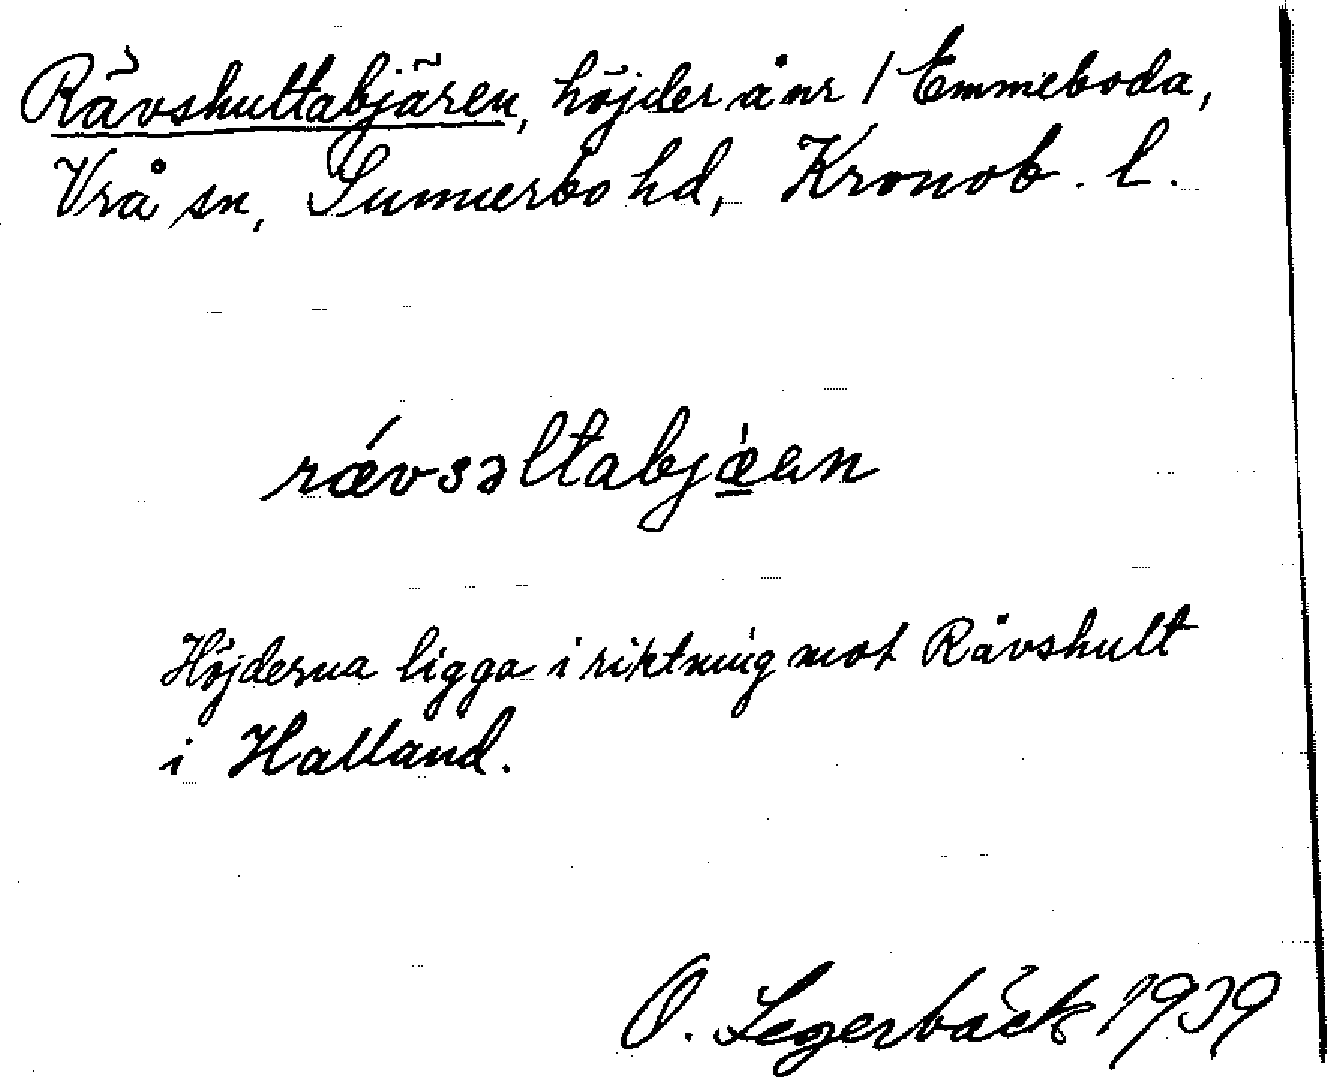 Rävshultabjären, höjder å nr 1 Emmeboda,
Vrå sn, Sunnerbo hd, Kronob. l.
rǽvsəltabjæ̲̍an
Höjderna ligga i riktning mot Rävshult
i Halland.
O. Segerbäck 1939